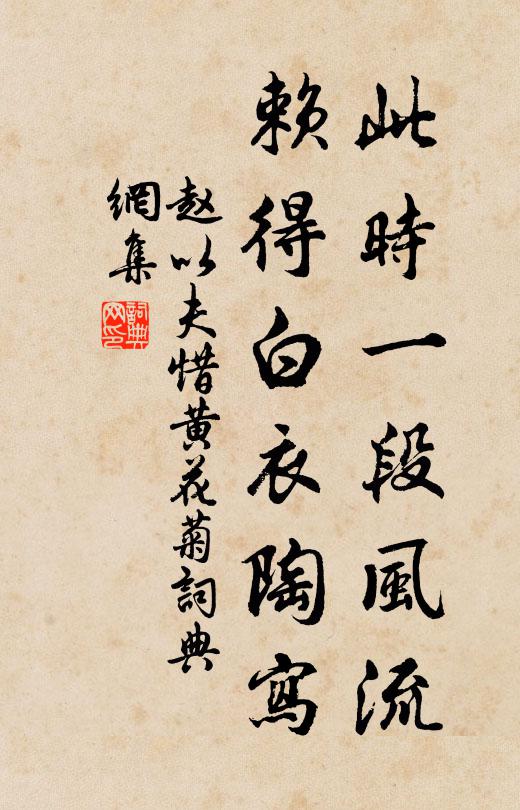 此時一段風流
賴得白衣陶寫
趙以夫惜黃花菊詞典
網集
詞典
网印